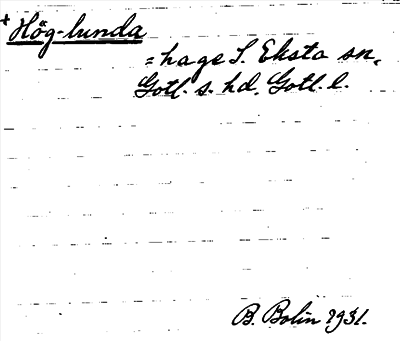 +Hög-lunda
= hage S. Eksta sn,
Gotl. s. hd, Gotl. l.
B. Bolin 1931.